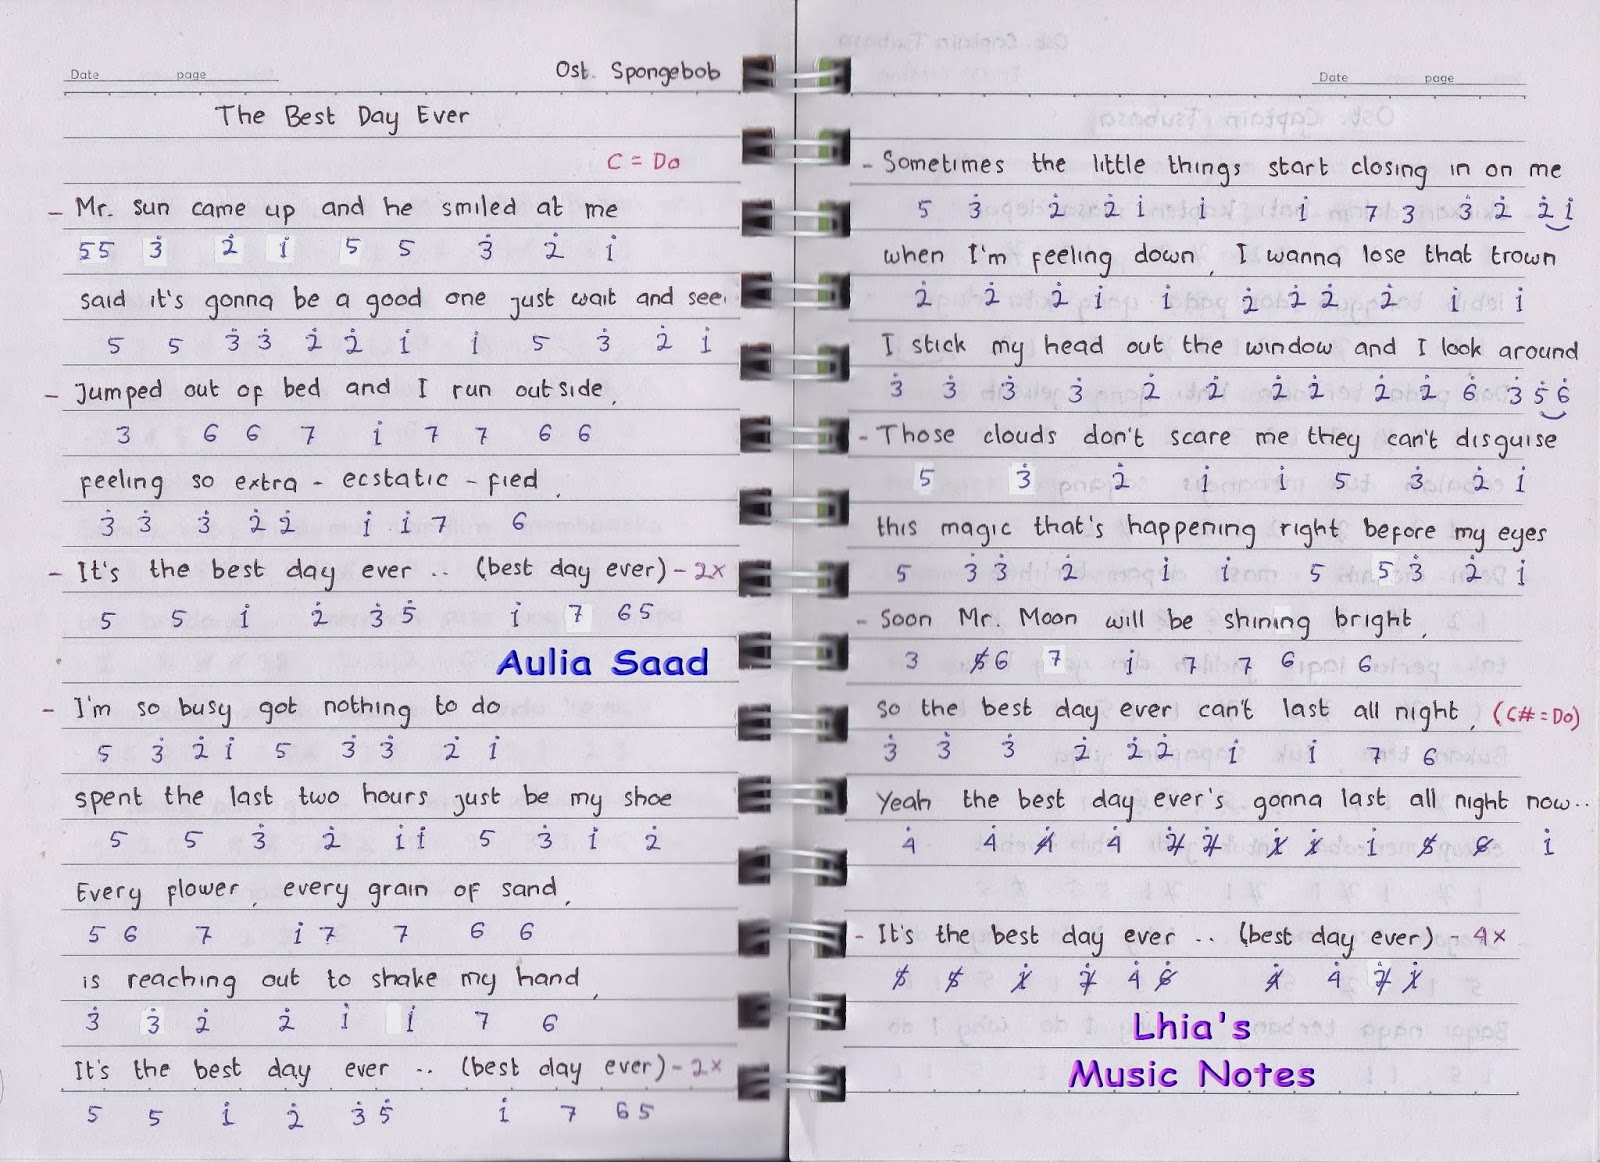 Date page Ost. Spongebob
The Best Day Ever
C = Do
- Mr. sun came up and he smiled at me
5 5 3̇ 2̇ 1̇ 5 5 3̇ 2̇ 1̇
said it's gonna be a good one just wait and see.
5 5 3̇ 3̇ 2̇ 2̇ 1̇ 1̇ 5 3̇ 2̇ 1̇
- Jumped out of bed and I run outside,
3 6 6 7 1̇ 7 7 6 6
feeling so extra - ecstatic - fied,
3̇ 3̇ 3̇ 2̇ 2̇ 1̇ 1̇ 7 6
- It's the best day ever .. (best day ever) - 2x
5 5 1̇ 2̇ 3̇ 5̇ 1̇ 7 6 5
Aulia Saad
- I'm so busy got nothing to do
5 3̇ 2̇ 1̇ 5 3̇ 3̇ 2̇ 1̇
spent the last two hours just be my shoe
5 5 3̇ 2̇ 1̇ 1̇ 5 3̇ 1̇ 2̇
Every flower, every grain of sand,
5 6 7 1̇ 7 7 6 6
is reaching out to shake my hand,
3̇ 3̇ 2̇ 2̇ 1̇ 1̇ 7 6
It's the best day ever .. (best day ever) - 2x
5 5 1̇ 2̇ 3̇ 5̇ 1̇ 7 6 5
Date page
- Sometimes the little things start closing in on me
5 3̇ 2̇ 2̇ 1̇ 1̇ 1̇ 7 3 3̇ 2̇ 2̇ 1̇
when I'm feeling down, I wanna lose that trown
2̇ 2̇ 2̇ 1̇ 1̇ 2̇ 2̇ 2̇ 2̇ 1̇ 1̇
I stick my head out the window and I look around
3̇ 3̇ 3̇ 3̇ 2̇ 2̇ 2̇ 2̇ 2̇ 2̇ 6̇ 3̇ 5̇ 6̇
- Those clouds don't scare me they can't disguise
5 3̇ 2̇ 1̇ 1̇ 5 3̇ 2̇ 1̇
this magic that's happening right before my eyes
5 3̇ 3̇ 2̇ 1̇ 1̇ 5 5 3̇ 2̇ 1̇
- Soon Mr. Moon will be shining bright,
3 5̸ 6 7 1̇ 7 7 6 6
so the best day ever can't last all night, (C# = Do)
3̇ 3̇ 3̇ 2̇ 2̇ 2̇ 1̇ 1̇ 7 6
Yeah the best day ever's gonna last all night now..
4̇ 4̇ 4̸̇ 4̇ 2̸̇ 2̸̇ 1̸̇ 1̸̇ 1̇ 5̸ 6̸ 1̇
- It's the best day ever .. (best day ever) - 4x
5̸ 5̸ 1̸̇ 2̸̇ 4̇ 5̸̇ 4̇ 2̸̇ 1̸̇
Lhia's
Music Notes